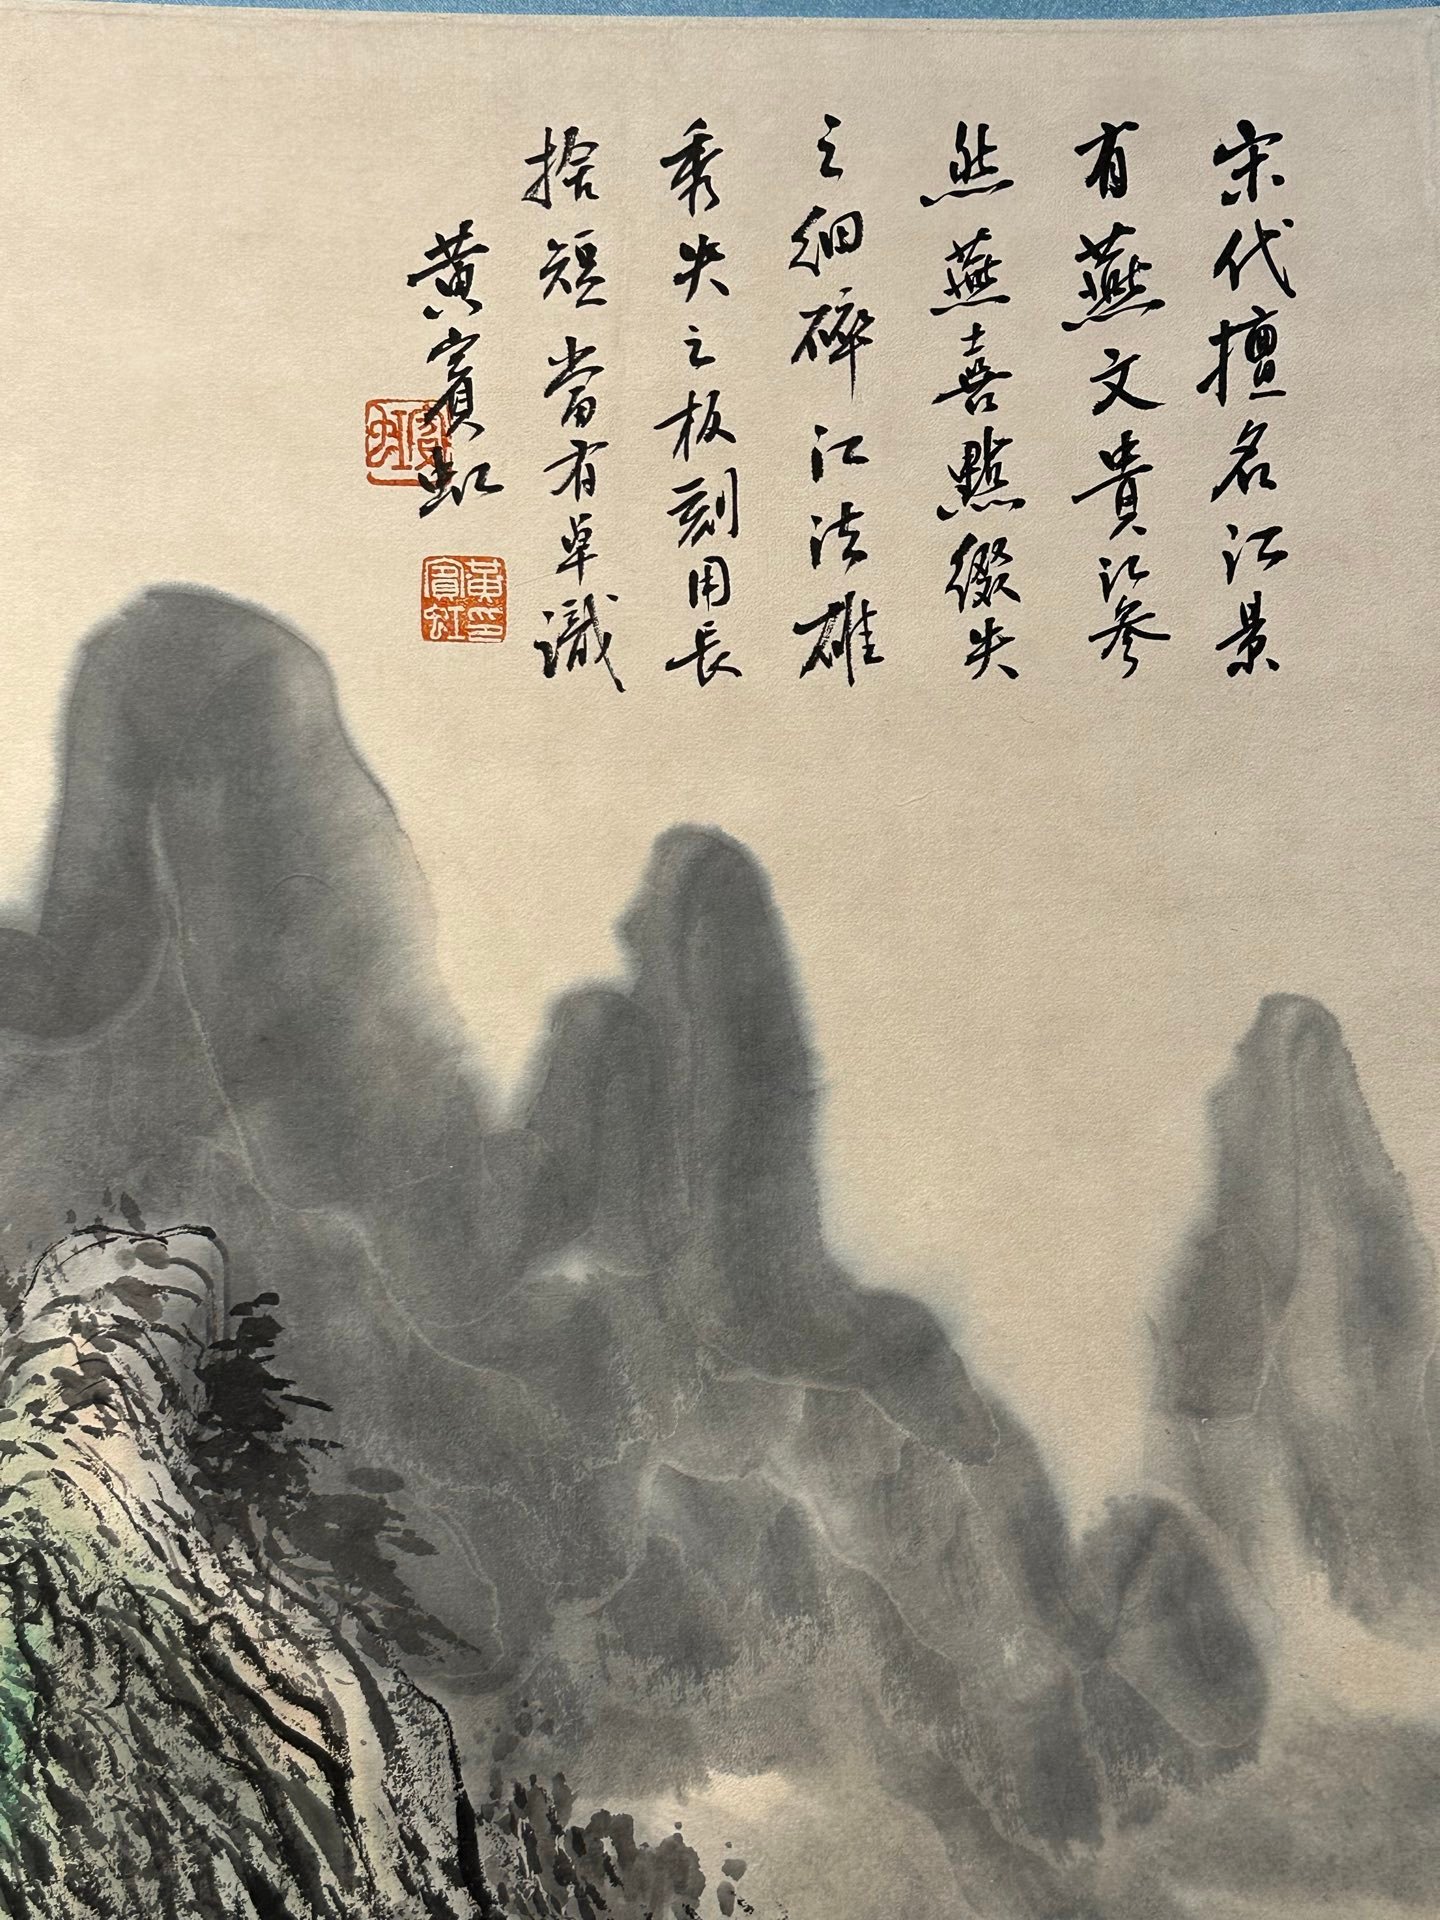 宋代擅名江景
有燕文貴江參
然燕喜點綴失
之細碎江法雄
秀失之板刻用長
捨短當有卓識
黃賓虹
黃賓虹印